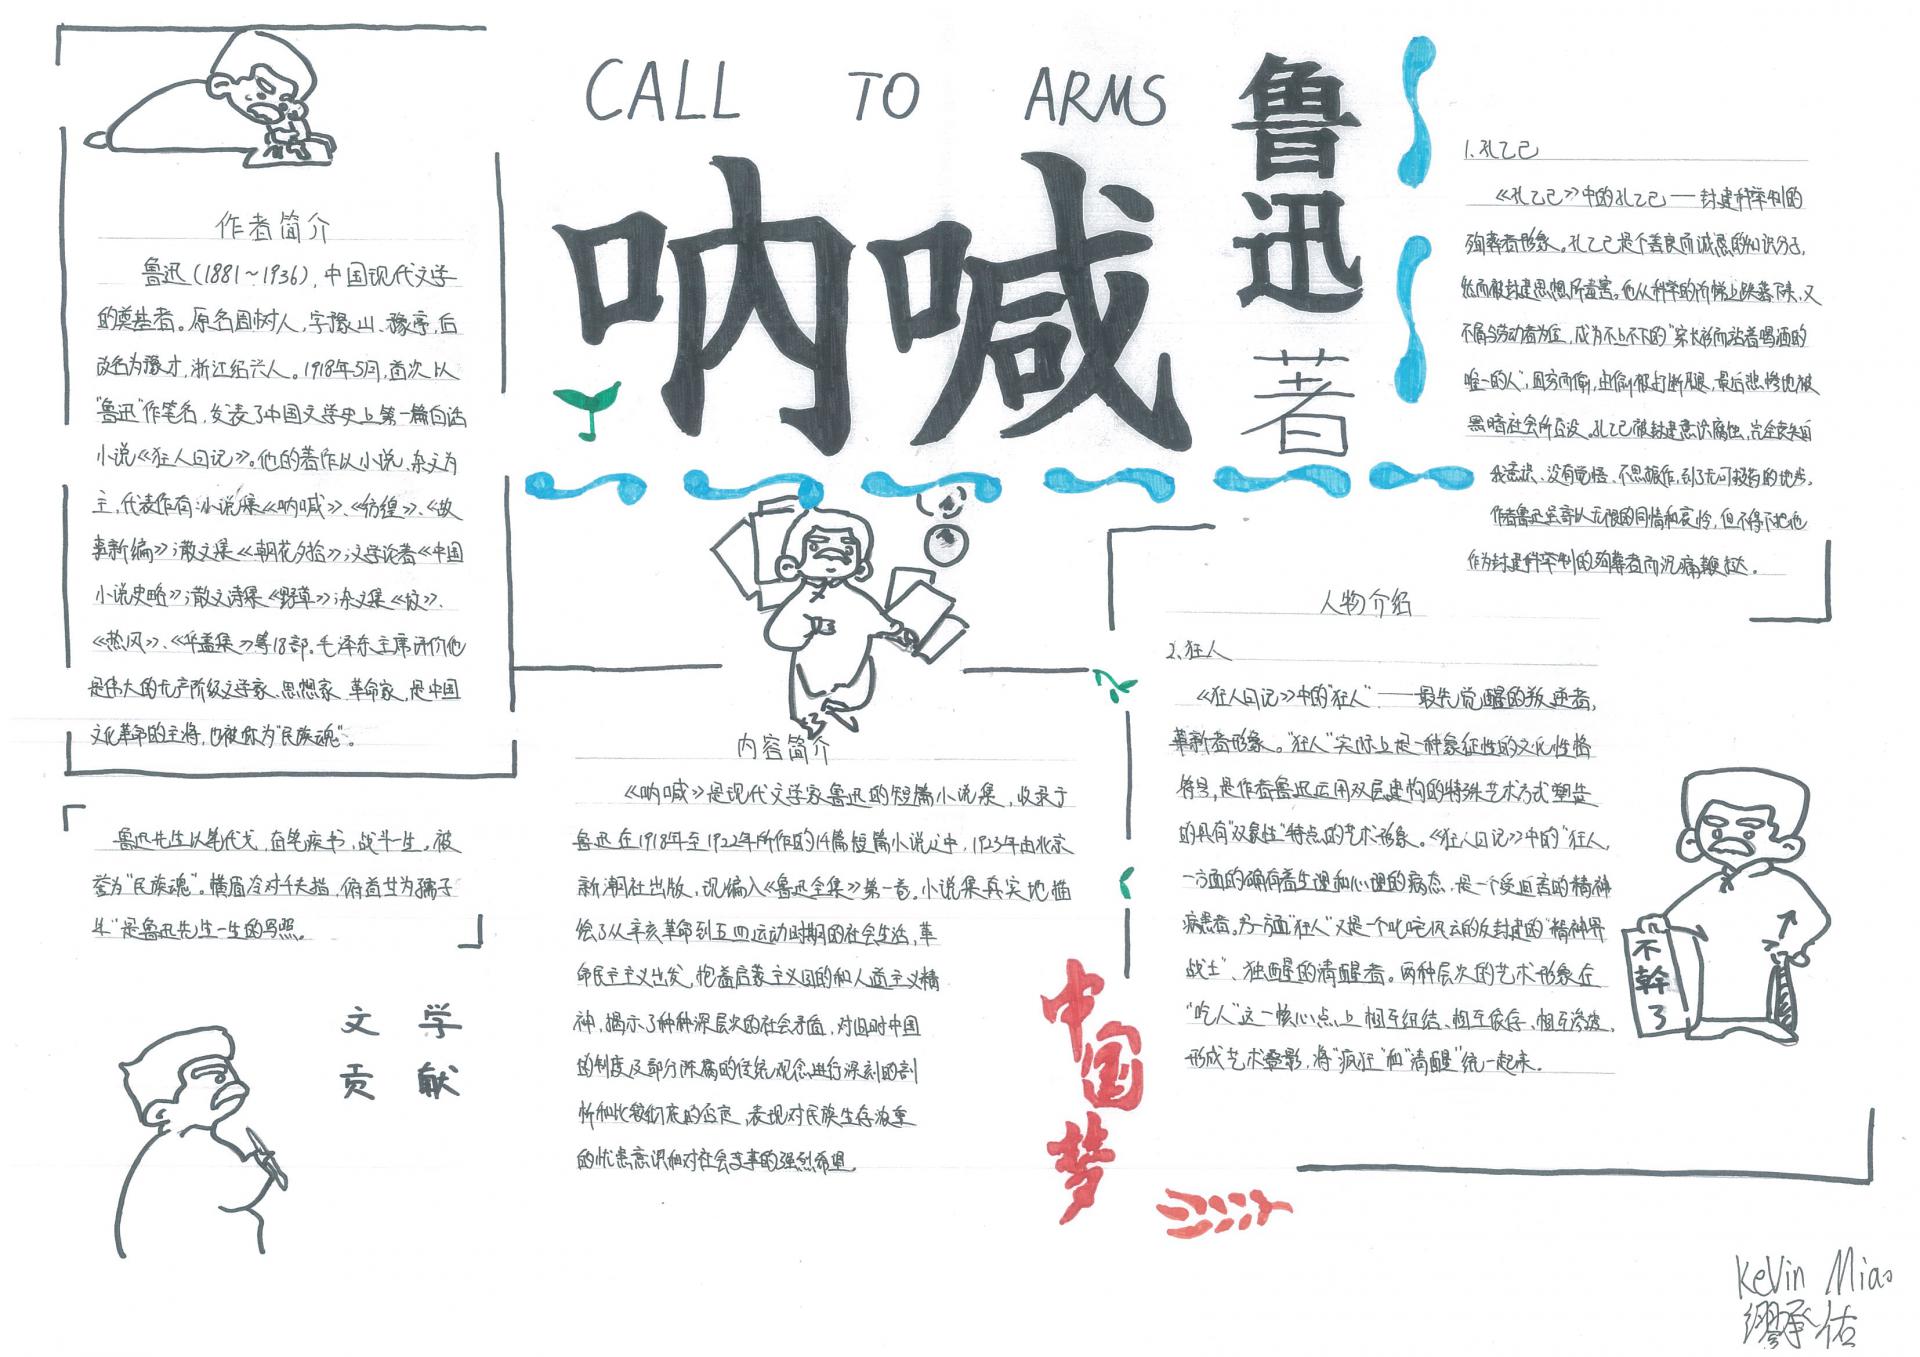 CALL TO ARMS
呐喊
鲁迅
著
作者简介
鲁迅(1881~1936),中国现代文学
的奠基者。原名周树人,字豫山、豫亭,后
改名为豫才,浙江绍兴人。1918年5月,首次以
"鲁迅"作笔名,发表了中国文学史上第一篇白话
小说《狂人日记》。他的著作以小说、杂文为
主,代表作有:小说集《呐喊》、《彷徨》、《故
事新编》;散文集《朝花夕拾》;文学论著《中国
小说史略》;散文诗集《野草》;杂文集《坟》、
《热风》、《华盖集》等18部。毛泽东主席评价他
是伟大的无产阶级文学家、思想家、革命家,是中国
文化革命的主将,也被称为"民族魂"。
鲁迅先生以笔代戈,奋笔疾书,战斗一生,被
誉为"民族魂"。横眉冷对千夫指,俯首甘为孺子
牛"是鲁迅先生一生的写照。
文学
贡献
内容简介
《呐喊》是现代文学家鲁迅的短篇小说集,收录于
鲁迅在1918年至1922年所作的14篇短篇小说之中,1923年由北京
新潮社出版,现编入《鲁迅全集》第一卷。小说集真实地描
绘了从辛亥革命到五四运动时期的社会生活,革
命民主主义出发,抱着启蒙主义目的和人道主义精
神,揭示了种种深层次的社会矛盾,对旧时中国
的制度及部分陈腐的传统观念进行深刻的剖
析和比较彻底的否定,表现对民族生存浓重
的忧患意识和对社会变革的强烈希望。
中国梦
1.孔乙己
《孔乙己》中的孔乙己——封建科举制的
殉葬者形象。孔乙己是个善良而诚恳的知识分子,
然而被封建思想所毒害。他从科举的阶梯上跌落下来,又
不屑与劳动者为伍,成为不上不下的"穿长衫而站着喝酒的
唯一的人",因穷而偷,由偷被打断腿,最后悲惨地被
黑暗社会所吞没。孔乙己被封建意识腐蚀,完全丧失自
我意识、没有觉悟、不思振作,到了无可救药的地步。
作者鲁迅虽寄以无限的同情和哀怜,但不得不把他
作为封建科举制的殉葬者而沉痛鞭挞。
人物介绍
2.狂人
《狂人日记》中的"狂人"——最先觉醒的叛逆者,
革新者形象。"狂人"实际上是一种象征性的文化性格
符号,是作者鲁迅运用双层建构的特殊艺术方式塑造
的具有"双象性"特点的艺术形象。《狂人日记》中的"狂人,
一方面的确有着生理和心理的病态,是一个受迫害的精神
病患者。另一方面"狂人"又是一个叱咤风云的反封建的"精神界
战士"、独醒的清醒者。两种层次的艺术形象在
"吃人"这一核心点上相互纽结、相互依存、相互渗透,
形成艺术叠影,将"疯狂"和"清醒"统一起来。
不幹了
Kevin Miao
缪承佑